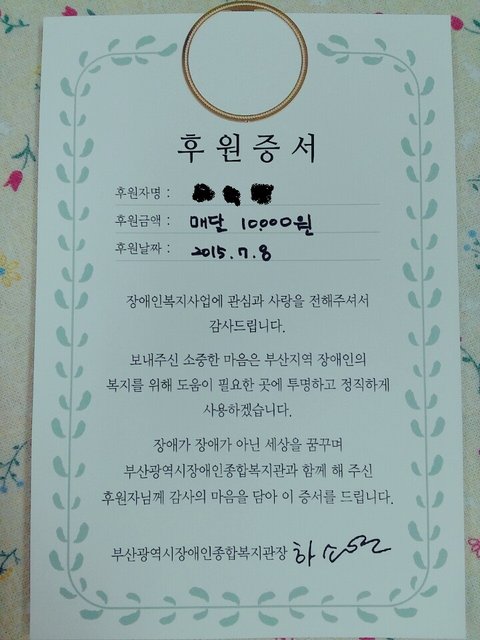 후원증서
후원자명 :
후원금액 : 매달 10,000원
후원날짜 : 2015.7.8
장애인복지사업에 관심과 사랑을 전해주셔서
감사드립니다.
보내주신 소중한 마음은 부산지역 장애인의
복지를 위해 도움이 필요한 곳에 투명하고 정직하게
사용하겠습니다.
장애가 장애가 아닌 세상을 꿈꾸며
부산광역시장애인종합복지관과 함께 해 주신
후원자님께 감사의 마음을 담아 이 증서를 드립니다.
부산광역시장애인종합복지관장